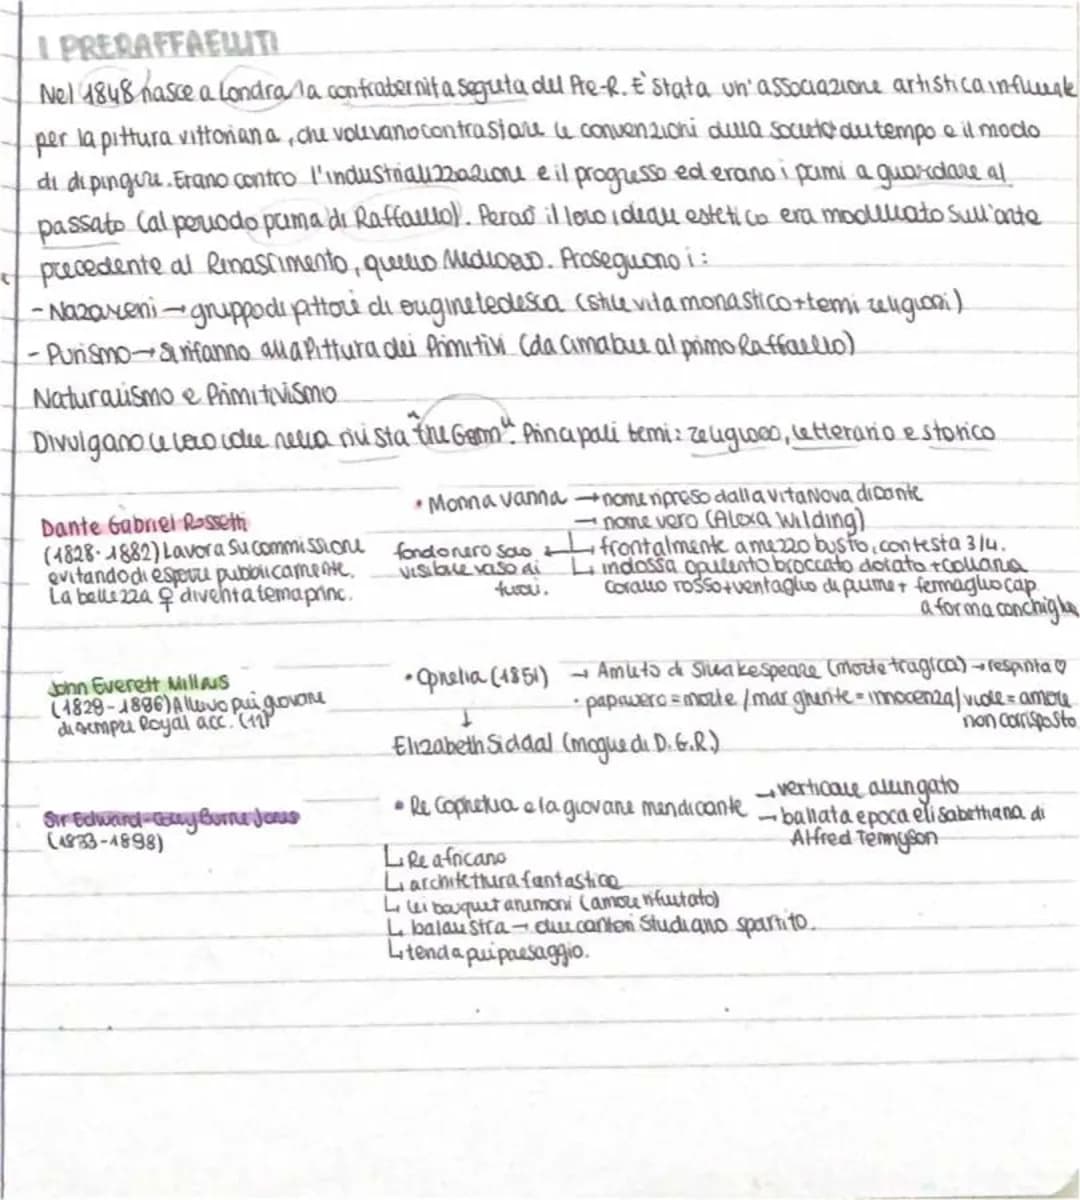 I PRERAFFAELLITI
Nel 1848 nasce a Londra la confraternita segreta dei Pre-R. E' stata un'associazione artistica influente
per la pittura vittoriana, che volevano contrastare le convenzioni della società del tempo e il modo
di dipingere. Erano contro l'industrializzazione e il progresso ed erano i primi a guardare al
passato (al periodo prima di Raffaello). Perciò il loro ideale estetico era modellato sull'arte
precedente al Rinascimento, quello Medioevo. Proseguono i:
- Nazareni → gruppo di pittori di origine tedesca (stile vita monastico + temi religiosi)
- Purismo → Si rifanno alla Pittura dei Primitivi (da Cimabue al primo Raffaello)
Naturalismo e Primitivismo
Divulgano le loro idee nella rivista "the Germ". Principali temi: religioso, letterario e storico
Dante Gabriel Rossetti
(1828-1882) Lavora su commissione
evitando di esporre pubblicamente.
La bellezza ♀ diventa tema princ.
• Monna vanna → nome ripreso dalla vita Nova di Dante
→ nome vero (Alexa Wilding)
↳ frontalmente a mezzo busto, con testa 3/4.
↳ indossa opulento broccato dorato + collana
corallo rosso + ventaglio di piume + fermaglio cap.
a forma conchiglia
fondo nero solo
visibile vaso di
fiori.
John Everett Millais
(1829-1896) Allievo più giovane
di sempre Royal acc. (11)
• Ophelia (1851) → Amleto di Sheakespeare (morte tragica) → respinta ♡
• papavero = morte / margherite = innocenza / viole = amore
non corrisposto
↓
Elizabeth Siddal (moglie di D.G.R.)
Sir Edward-Coley Burne Jones
(1833-1898)
• Re Cophetua e la giovane mendicante → verticale allungato
→ ballata epoca elisabethiana di
Alfred Tennyson
↳ Re africano
↳ architettura fantastica
↳ lei bouquet anemoni (amore rifiutato)
↳ balaustra → due cantori studiano spartito.
↳ tenda più paesaggio.